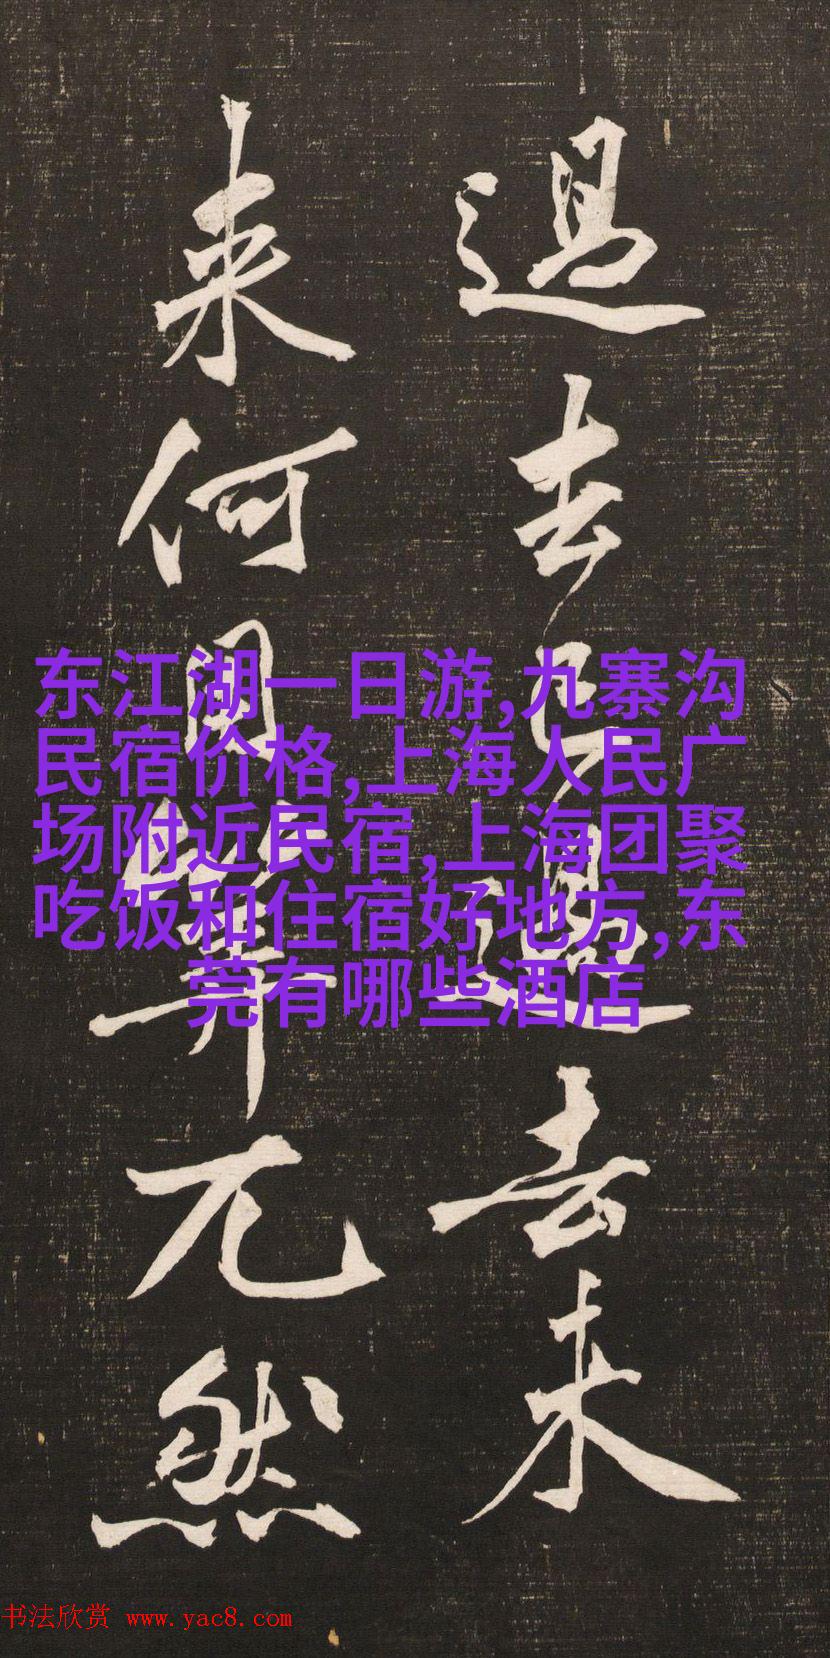 過去已過去未
来何用算兀然
东江湖一日游,九寨沟
民宿价格,上海人民广
场附近民宿,上海团聚
吃饭和住宿好地方,东
莞有哪些酒店
书法欣赏 www.yac8.com